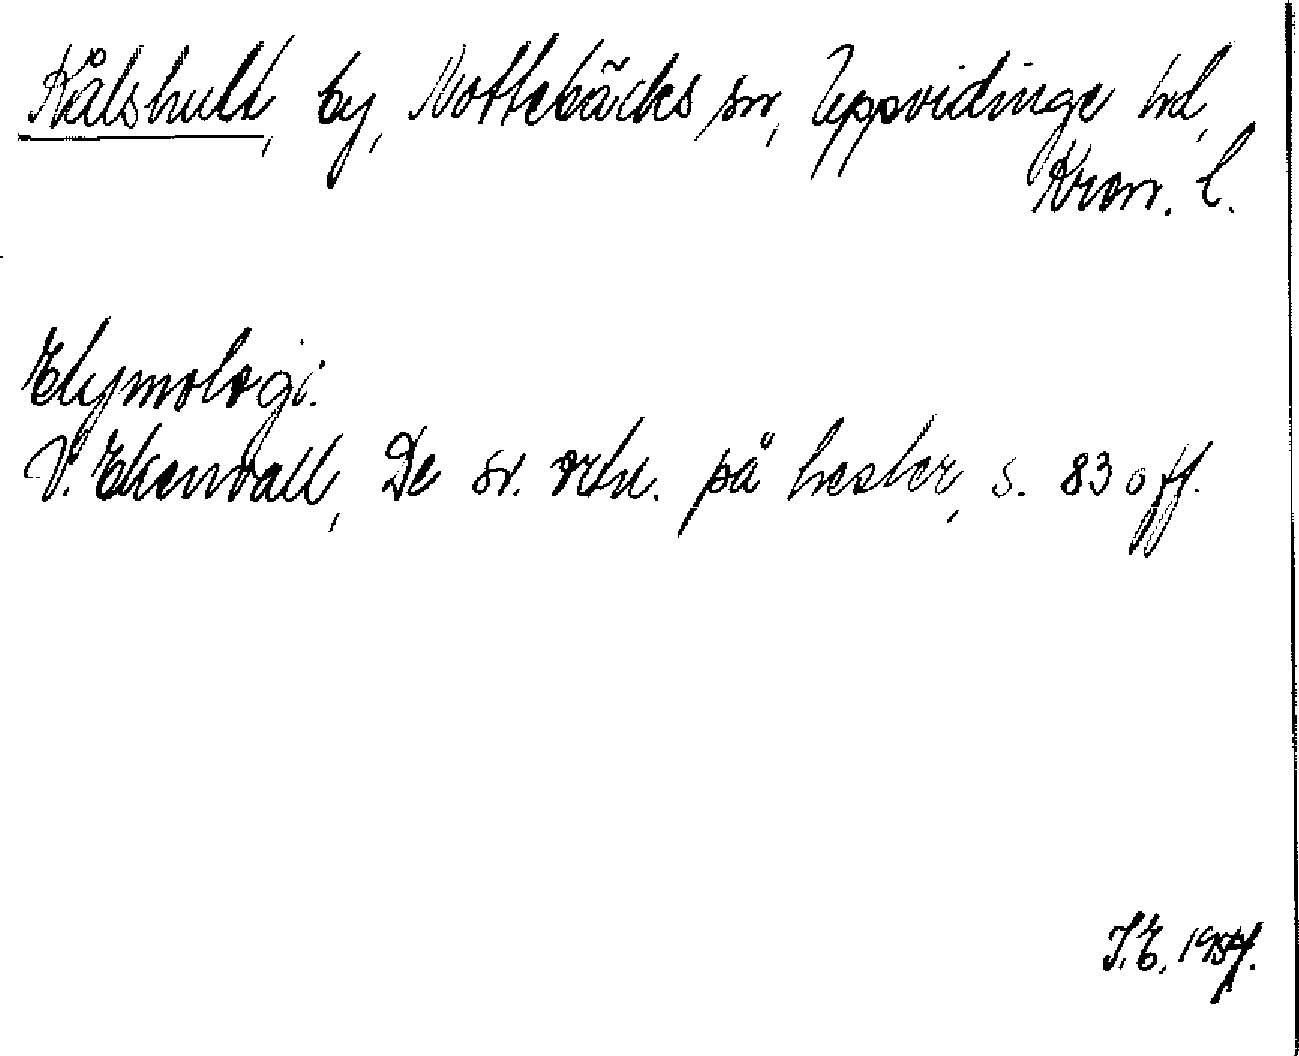 Kålshult, by, Nottebäcks sn, Uppvidinge hd,
Kron. l.
Etymologi.
V. Ekenvall, De sv. ortn. på hester, s. 83 o ff.
I.E.